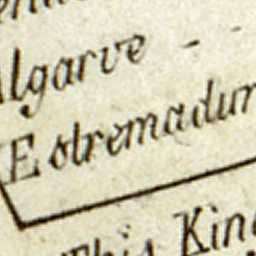 Algarve - -
Estremadur
This King